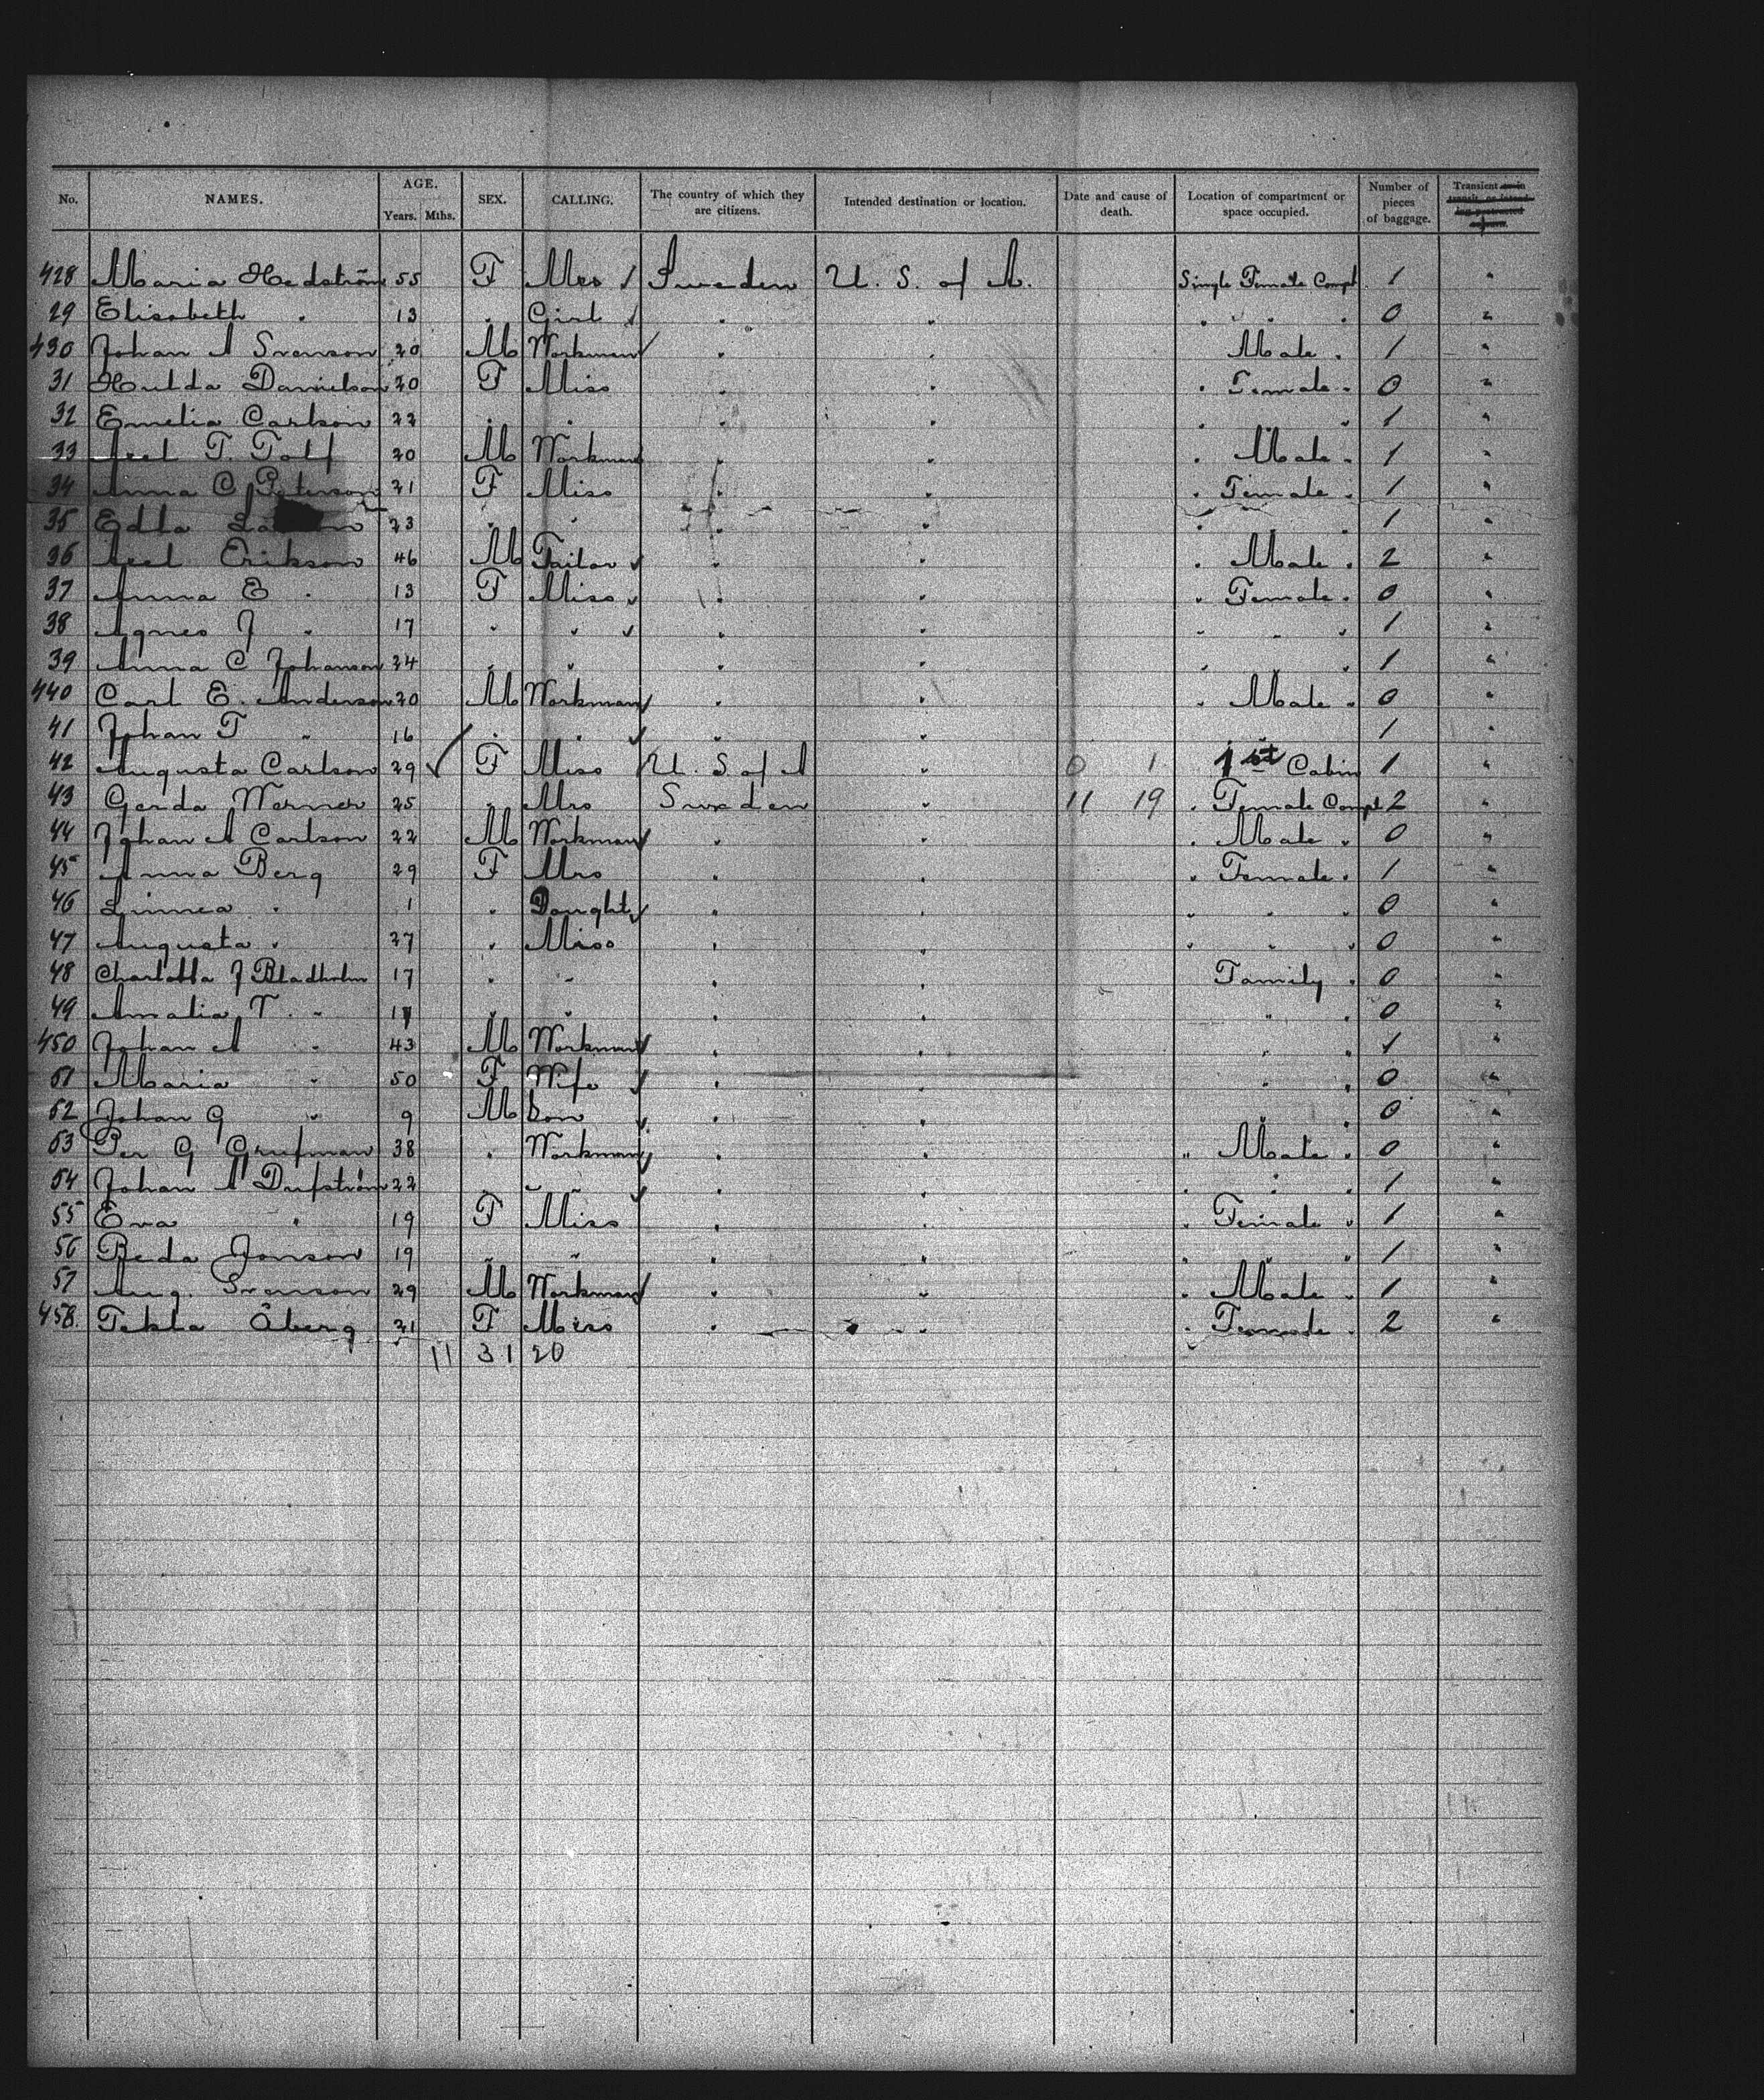 No. NAMES. AGE. Years. Mths. SEX. CALLING. The country of which they are citizens. Intended destination or location. Date and cause of death. Location of compartment or space occupied. Number of pieces of baggage. Transient
428 Maria Hedström 55 F Mrs / Sweden U. S. of A. Single Female Compt. 1 "
29 Elisabeth " 13 " Girl / " " " " " 0 "
430 Johan A Svenson 20 M Workman / " " Male " 1 "
31 Hulda Danielson 20 F Miss " " " Female " 0 "
32 Emelia Carlson 22 " " " " " " 1 "
33 Axel T. Tolf 20 M Workman " " " Male " 1 "
34 Anna C Peterson 21 F Miss " " " Female " 1 "
35 Edla 23 " " " " " " 1 "
36 Axel Erikson 46 M Tailor ✓ " " " Male " 2 "
37 Anna E " 13 F Miss ✓ " " " Female " 0 "
38 Agnes J " 17 " " ✓ " " " " " 1 "
39 Anna C Johanson 24 " " " " " " 1 "
440 Carl E. Anderson 20 M Workman / " " " Male " 0 "
41 Johan T " 16 " " ✓ " " " " 1 "
42 Augusta Carlson 29 ✓ F Miss / U. S. of A " 0 1 1st Cabin 1 "
43 Gerda Werner 25 " Mrs Sweden " 11 19 " Female Compt 2 "
44 Johan A Carlson 22 M Workman / " " " Male " 0 "
45 Anna Berg 29 F Mrs " " " Female " 1 "
46 Linnea " 1 " Daught ✓ " " " " " 0 "
47 Augusta " 27 " Miss " " " " " 0 "
48 Charlotta J Bladholm 17 " " " " Family " 0 "
49 Amalia T. " " " " " " " 0 "
450 Johan A " 43 M Workman / " " " " 1 "
51 Maria " 50 F Wife ✓ " " " " 0 "
52 Johan G " 9 M Son ✓ " " " " 0 "
53 Per G 38 " Workman ✓ " " " Male " 0 "
54 Johan A 22 " " ✓ " " " " " 1 "
55 Eva " 19 F Miss " " " Female " 1 "
56 Beda Jonson 19 " " " " " " " 1 "
57 Aug. Svenson 29 M Workman / " " " Male " 1 "
458. Tekla Åberg 21 F Miss " " " Female " 2 "
11 31 20